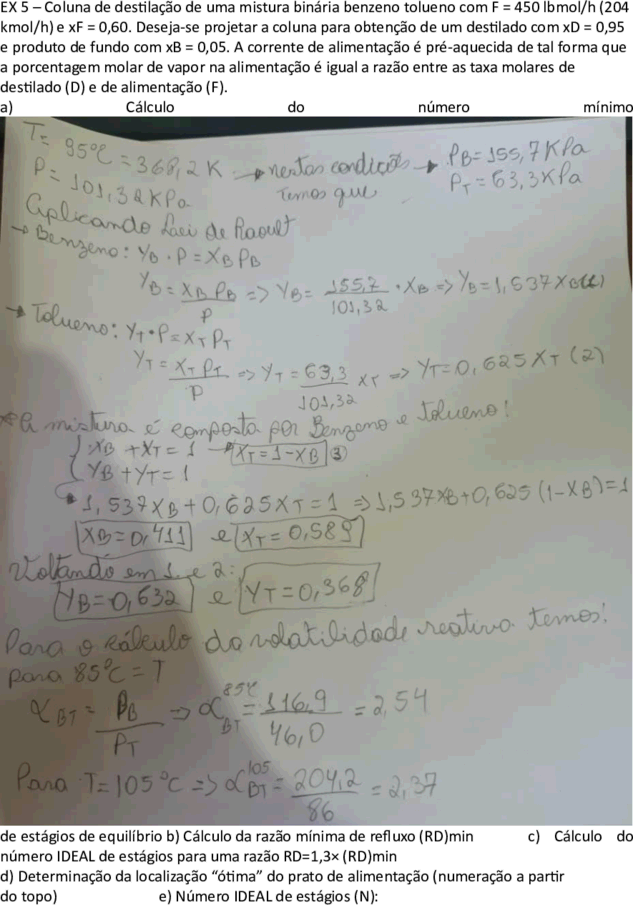 EX 5 – Coluna de destilação de uma mistura binária benzeno tolueno com F = 450 lbmol/h (204
kmol/h) e xF = 0,60. Deseja-se projetar a coluna para obtenção de um destilado com xD = 0,95
e produto de fundo com xB = 0,05. A corrente de alimentação é pré-aquecida de tal forma que
a porcentagem molar de vapor na alimentação é igual a razão entre as taxa molares de
destilado (D) e de alimentação (F).
a) Cálculo do número mínimo
T= 95°C = 368,2 K → nestas condições → PB= 155,7 KPa
P= 101,32 KPa temos que PT= 63,3 KPa
Aplicando Lei de Raoult
→ Benzeno: YB · P = XB PB
YB = XB PB / P => YB= 155,7 / 101,32 · XB => YB=1,537 XB (1)
→ Tolueno: YT · P = XT PT
YT = XT PT / P => YT = 63,3 / 101,32 XT => YT=0,625 XT (2)
*A mistura é composta por Benzeno e Tolueno!
{ XB + XT = 1 → XT = 1-XB (3)
{ YB + YT = 1
1,537XB + 0,625XT = 1 => 1,537XB+0,625 (1-XB)=1
XB=0,411 e XT = 0,589
Voltando em 1 e 2:
YB=0,632 e YT=0,368
Para o cálculo da volatilidade reativa temos!
para 85°C = T
αBT = PB / PT => α BT 85°C = 116,9 / 46,0 = 2,54
Para T=105°C => α BT 105 = 204,2 / 86 = 2,37
de estágios de equilíbrio b) Cálculo da razão mínima de refluxo (RD)min c) Cálculo do
número IDEAL de estágios para uma razão RD=1,3× (RD)min
d) Determinação da localização “ótima” do prato de alimentação (numeração a partir
do topo) e) Número IDEAL de estágios (N):